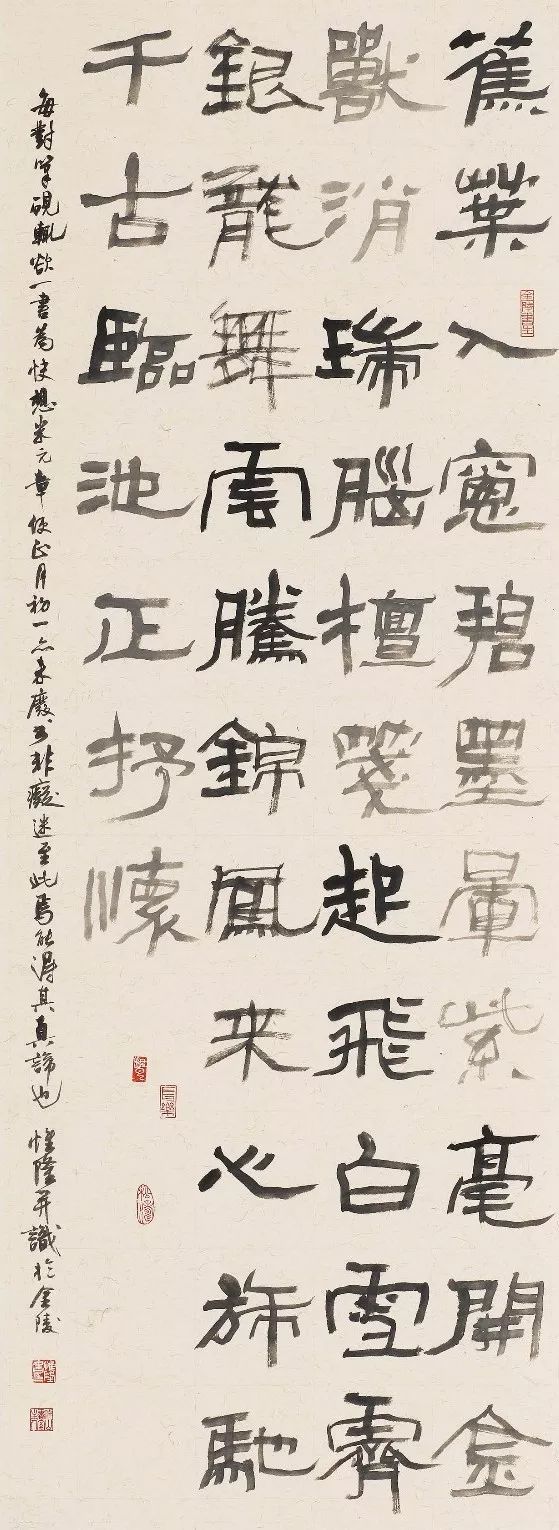 蕉葉入窻碧墨暈紫毫開金
獸消瑞腦檀箋起飛白雪霽
銀龍舞雲騰錦鳳来心旆馳
千古臨池正抒懷
每對筆硯輒欲一書為快想米元章使正月初一亦未廢書非癡迷至此焉能得其真諦也 惟隆并識於金陵